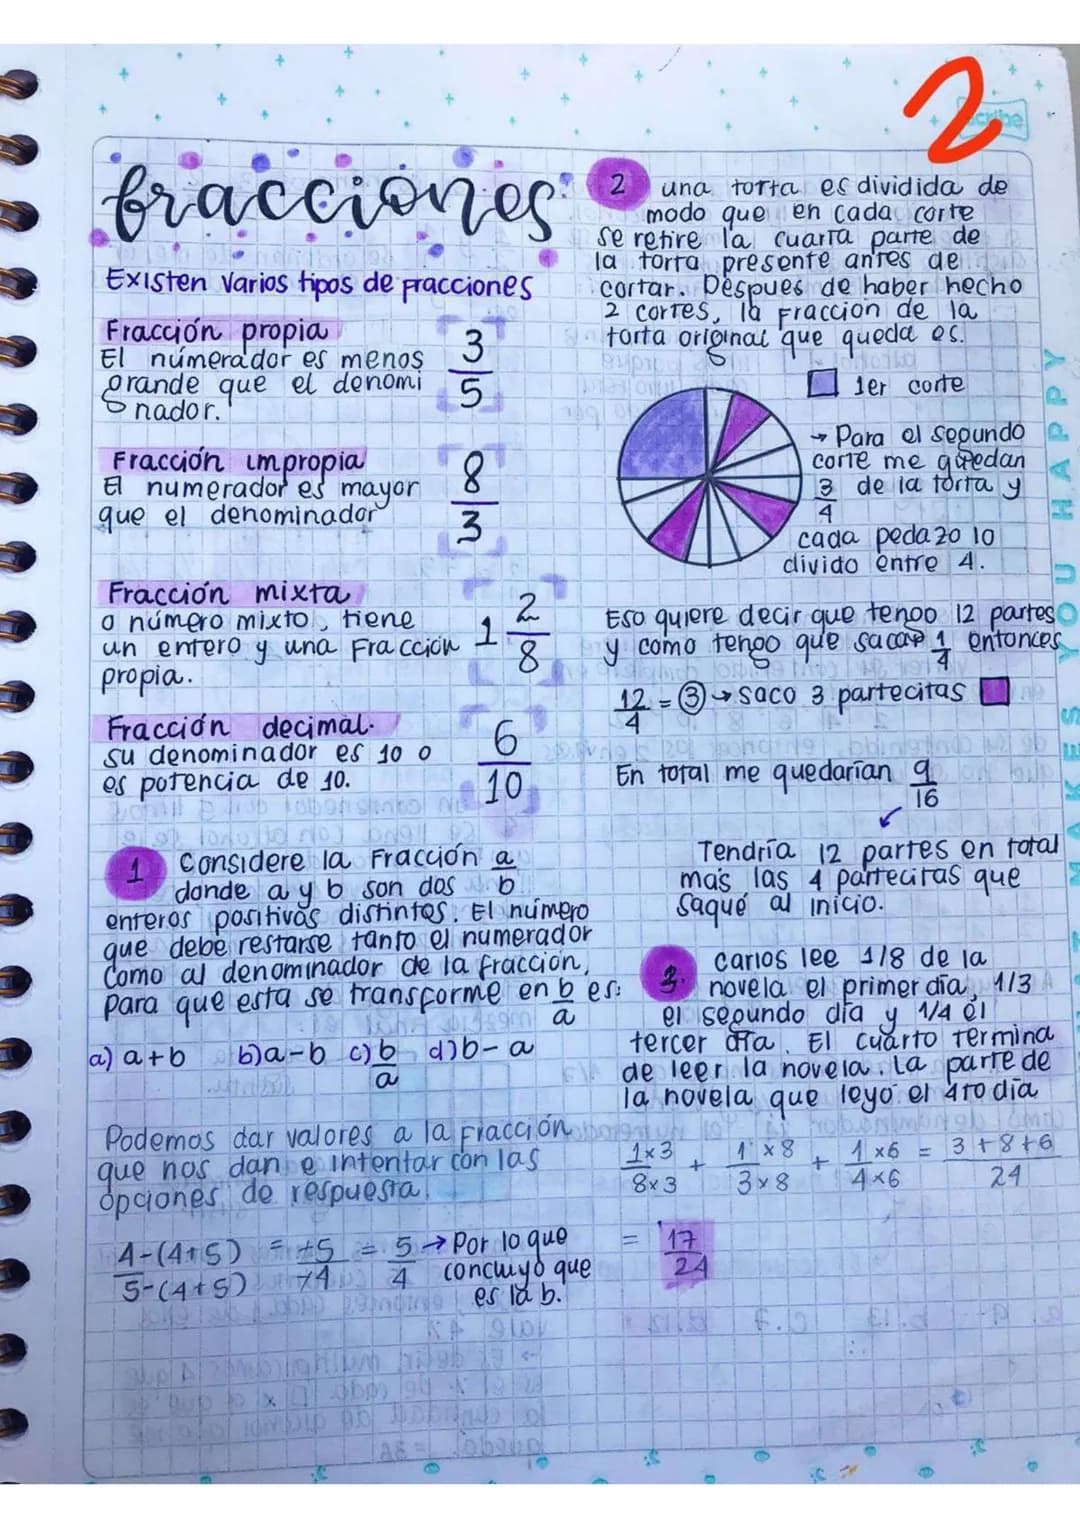 2
scribe
fracciones:
Existen varios tipos de fracciones
Fracción propia
El númerador es menos
grande que el denomi
nador.
3
5
Fracción impropia
El numerador es mayor
que el denominador
8
3
Fracción mixta
o número mixto, tiene
un entero y una Fracción
propia.
1 2
8
Fracción decimal.
su denominador es 10 o
es potencia de 10.
6
10
1 Considere la Fracción a
donde a y b son dos b
enteros positivos distintos. El número
que debe restarse tanto el numerador
como al denominador de la fracción,
Para que esta se transforme en b es:
a
a) a+b b) a-b c) b d) b-a
a
Podemos dar valores a la Fracción
que nos dan e intentar con las
opciones de respuesta.
4-(4+5) = +5 = 5 → Por lo que
5-(4+5) +4 4 concluyo que
es la b.
2 una torta es dividida de
modo que en cada corte
se retire la cuarta parte de
la torta presente antes de
cortar. Después de haber hecho
2 cortes, la Fracción de la
torta original que queda es.
1er corte
→ Para el segundo
corte me quedan
3 de la torta y
4
cada pedazo lo
divido entre 4.
Eso quiere decir que tengo 12 partes
y como tengo que sacar 1 entonces
4
12 = 3 → saco 3 partecitas
4
En total me quedarían 9
16
Tendría 12 partes en total
mas las 4 partecitas que
saqué al inicio.
3. Carlos lee 1/8 de la
novela el primer día, 1/3
el segundo día y 1/4 el
tercer día. El cuarto termina
de leer la novela. La parte de
la novela que leyó el 4to día
1x3 + 1x8 + 1x6 = 3+8+6
8x3 3x8 4x6 24
= 17
24
MAKES YOU HAPPY